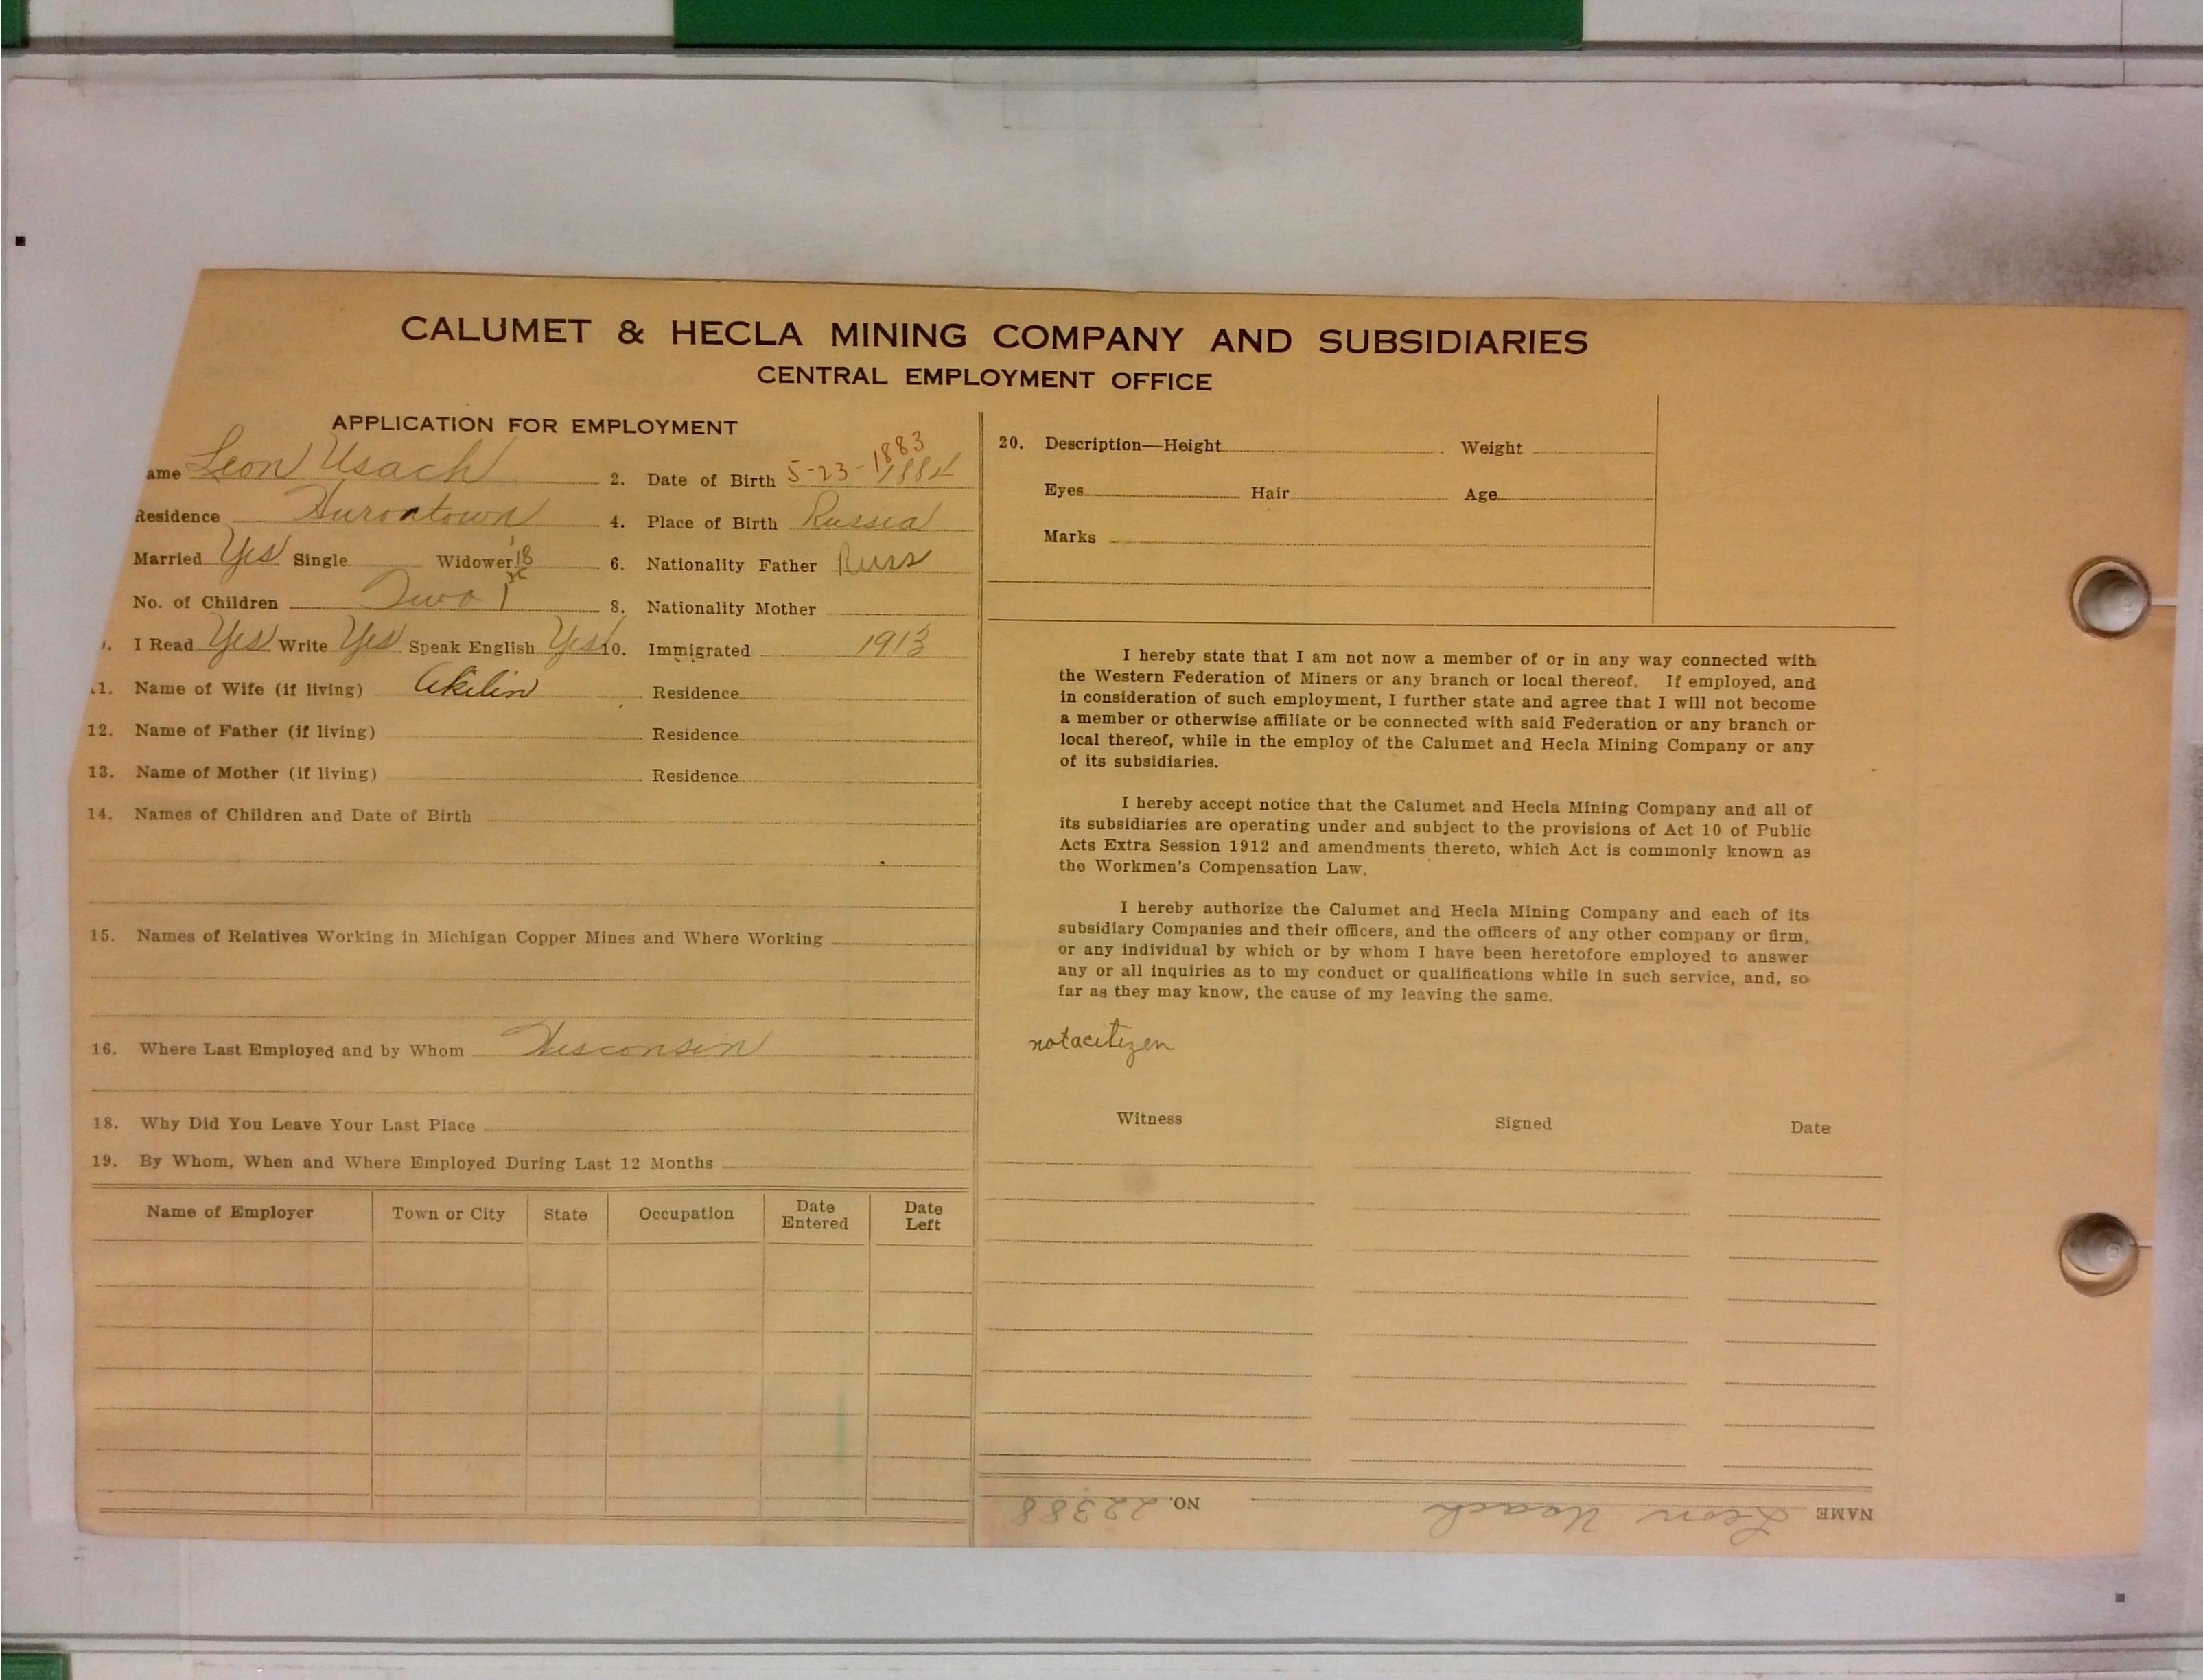 CALUMET & HECLA MINING COMPANY AND SUBSIDIARIES
CENTRAL EMPLOYMENT OFFICE
APPLICATION FOR EMPLOYMENT
ame Leon Usach 2. Date of Birth 5-23-1884 1883
Residence Hurontown 4. Place of Birth Russia
Married Yes Single Widower 18 6. Nationality Father Russ
No. of Children Two 8. Nationality Mother
I Read Yes Write Yes Speak English Yes 10. Immigrated 1913
11. Name of Wife (if living) Akilin Residence
12. Name of Father (if living) Residence
13. Name of Mother (if living) Residence
14. Names of Children and Date of Birth
15. Names of Relatives Working in Michigan Copper Mines and Where Working
16. Where Last Employed and by Whom Wisconsin
18. Why Did You Leave Your Last Place
19. By Whom, When and Where Employed During Last 12 Months
Name of Employer Town or City State Occupation Date Entered Date Left
20. Description—Height Weight
Eyes Hair Age
Marks
I hereby state that I am not now a member of or in any way connected with
the Western Federation of Miners or any branch or local thereof. If employed, and
in consideration of such employment, I further state and agree that I will not become
a member or otherwise affiliate or be connected with said Federation or any branch or
local thereof, while in the employ of the Calumet and Hecla Mining Company or any
of its subsidiaries.
I hereby accept notice that the Calumet and Hecla Mining Company and all of
its subsidiaries are operating under and subject to the provisions of Act 10 of Public
Acts Extra Session 1912 and amendments thereto, which Act is commonly known as
the Workmen's Compensation Law.
I hereby authorize the Calumet and Hecla Mining Company and each of its
subsidiary Companies and their officers, and the officers of any other company or firm,
or any individual by which or by whom I have been heretofore employed to answer
any or all inquiries as to my conduct or qualifications while in such service, and, so
far as they may know, the cause of my leaving the same.
not a citizen
Witness Signed Date
NAME Leon Usach NO. 22388